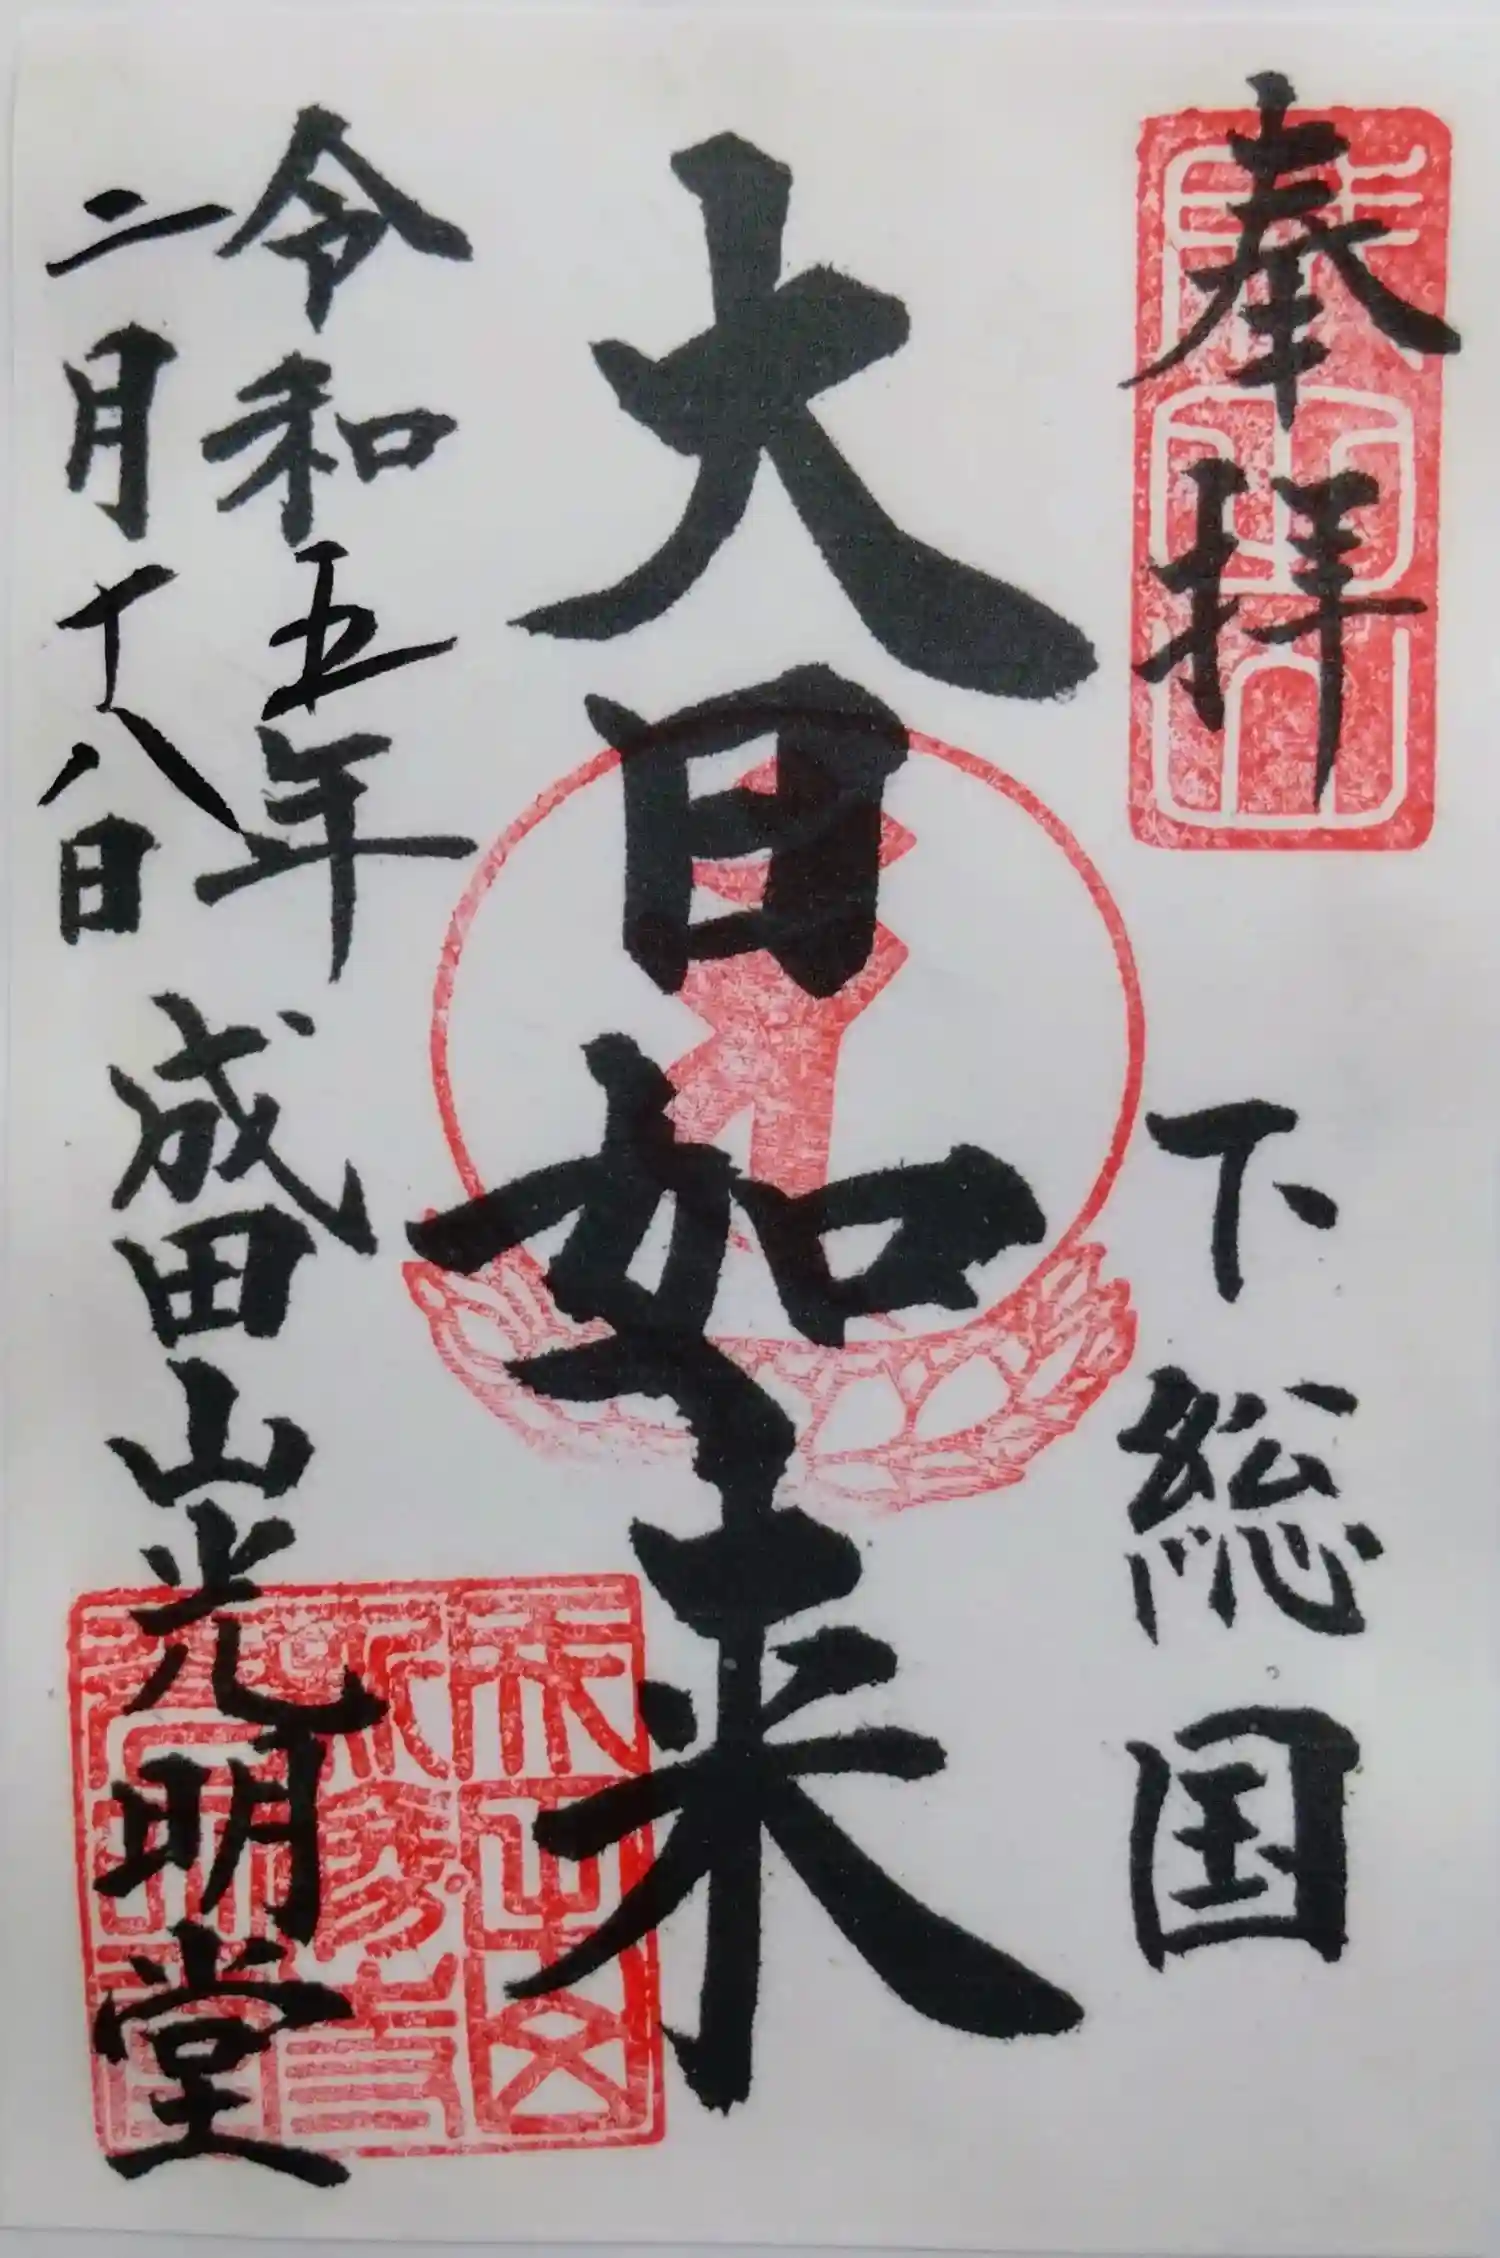 奉拝
下総国
大日如来
令和五年
二月十八日
成田山光明堂